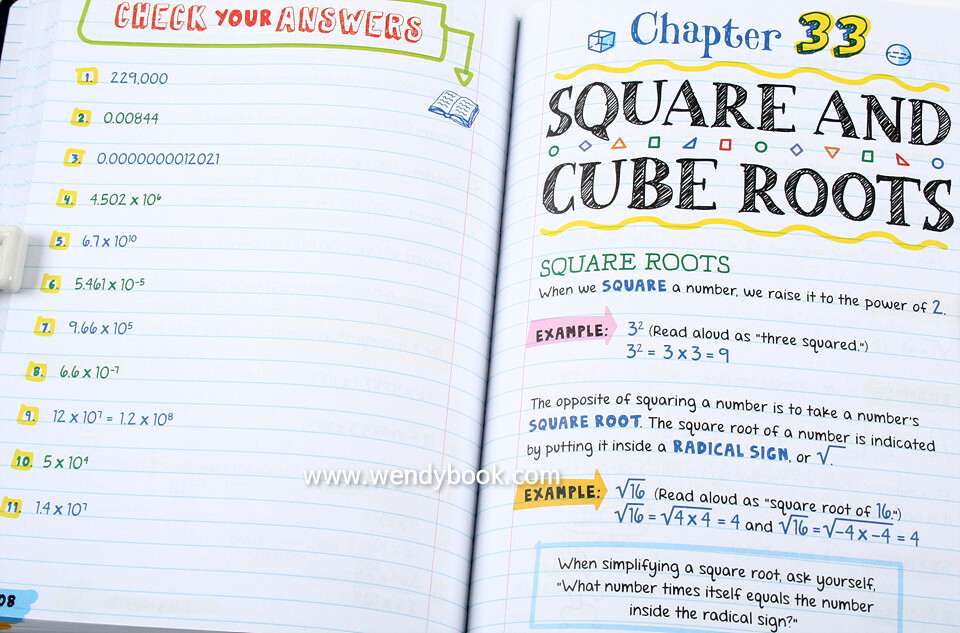 CHECK YOUR ANSWERS
1. 229,000
2. 0.00844
3. 0.0000000012021
4. 4.502 x 10⁶
5. 6.7 x 10¹⁰
6. 5.461 x 10⁻⁵
7. 9.66 x 10⁵
8. 6.6 x 10⁻⁷
9. 12 x 10⁷ = 1.2 x 10⁸
10. 5 x 10⁴
11. 1.4 x 10⁷
08
Chapter 33
SQUARE AND
CUBE ROOTS
SQUARE ROOTS
When we SQUARE a number, we raise it to the power of 2.
EXAMPLE: 3² (Read aloud as "three squared.")
3² = 3 x 3 = 9
The opposite of squaring a number is to take a number's
SQUARE ROOT. The square root of a number is indicated
by putting it inside a RADICAL SIGN, or √.
www.wendybook.com
EXAMPLE: √16 (Read aloud as "square root of 16.")
√16 = √4 x 4 = 4 and √16 = √-4 x -4 = 4
When simplifying a square root, ask yourself,
"What number times itself equals the number
inside the radical sign?"